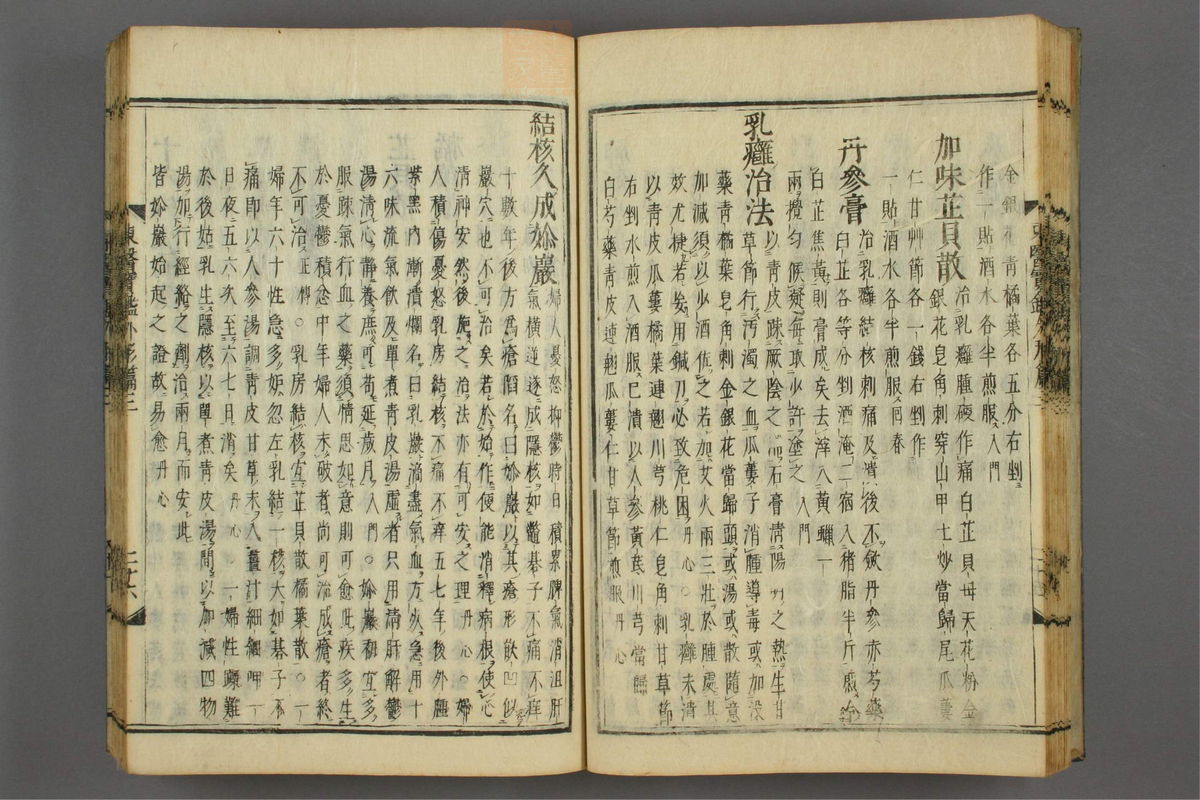 金銀花青橘葉各五分右剉
作一貼酒水各半煎服入門
加味芷貝散 治乳癰腫硬作痛白芷貝母天花粉金
銀花皂角刺穿山甲土炒當歸尾瓜蔞
仁甘艸節各一錢右剉作
一貼酒水各半煎服回春
丹參膏 治乳癰結核刺痛及潰後不歛丹參赤芍藥
白芷各等分剉酒淹二宿入猪脂半斤煎
白芷焦黃則膏成矣去滓入黃蠟一
兩攪匀候凝每取少許塗之入門
乳癰治法 以青皮踈厥陰之石膏淸陽明之熱生甘
草節行汚濁之血瓜蔞子消腫導毒或加沒
藥靑橘葉皂角刺金銀花當歸頭或湯或散隨意
加減須以少酒佐之若加艾火兩三壯於腫處其
效尤捷若矣用鍼刀必致危困丹心○乳癰未潰
以靑皮瓜蔞橘葉連翹川芎桃仁皂角刺甘草節
右剉水煎入酒服已潰以人參黃芪川芎當歸
白芍藥靑皮連翹瓜蔞仁甘草節煎服丹心
結核久成妳巖 婦人憂怒抑鬱時日積累脾氣消沮肝
氣橫逆遂成隱核如鼈碁子不痛不痒
十數年後方爲瘡陷名曰妳巖以其瘡形嵌凹似
巖穴也不可治矣若於始作便能消釋病根使心
淸神安然後施之治法亦有可安之理丹心○婦
人積傷憂怒乳房結核不痛不痒五七年後外腫
紫黑內漸潰爛名曰乳巖滴盡氣血方死急用十
六味流氣飮及單煮靑皮湯虛者只用淸肝解鬱
湯淸心靜養庶可苟延歲月入門○妳巖初宜多
服踈氣行血之藥須情思如意則可愈此疾多生
於憂鬱積忿中年婦人未破者尙可治成瘡者終
不可治正傳○乳房結核宜芷貝散橘葉散○一
婦年六十性急多妬忽左乳結一核大如碁子不
痛卽以人參湯調靑皮甘草末入薑汁細細呷一
日夜五六次至六七日消矣丹心○一婦性躁難
於後姑乳生隱核以單煮靑皮湯間以加減四物
湯加行經絡之劑治兩月而安此
皆妳巖始起之證故易愈丹心
東醫寶鑑外形篇三
二十六